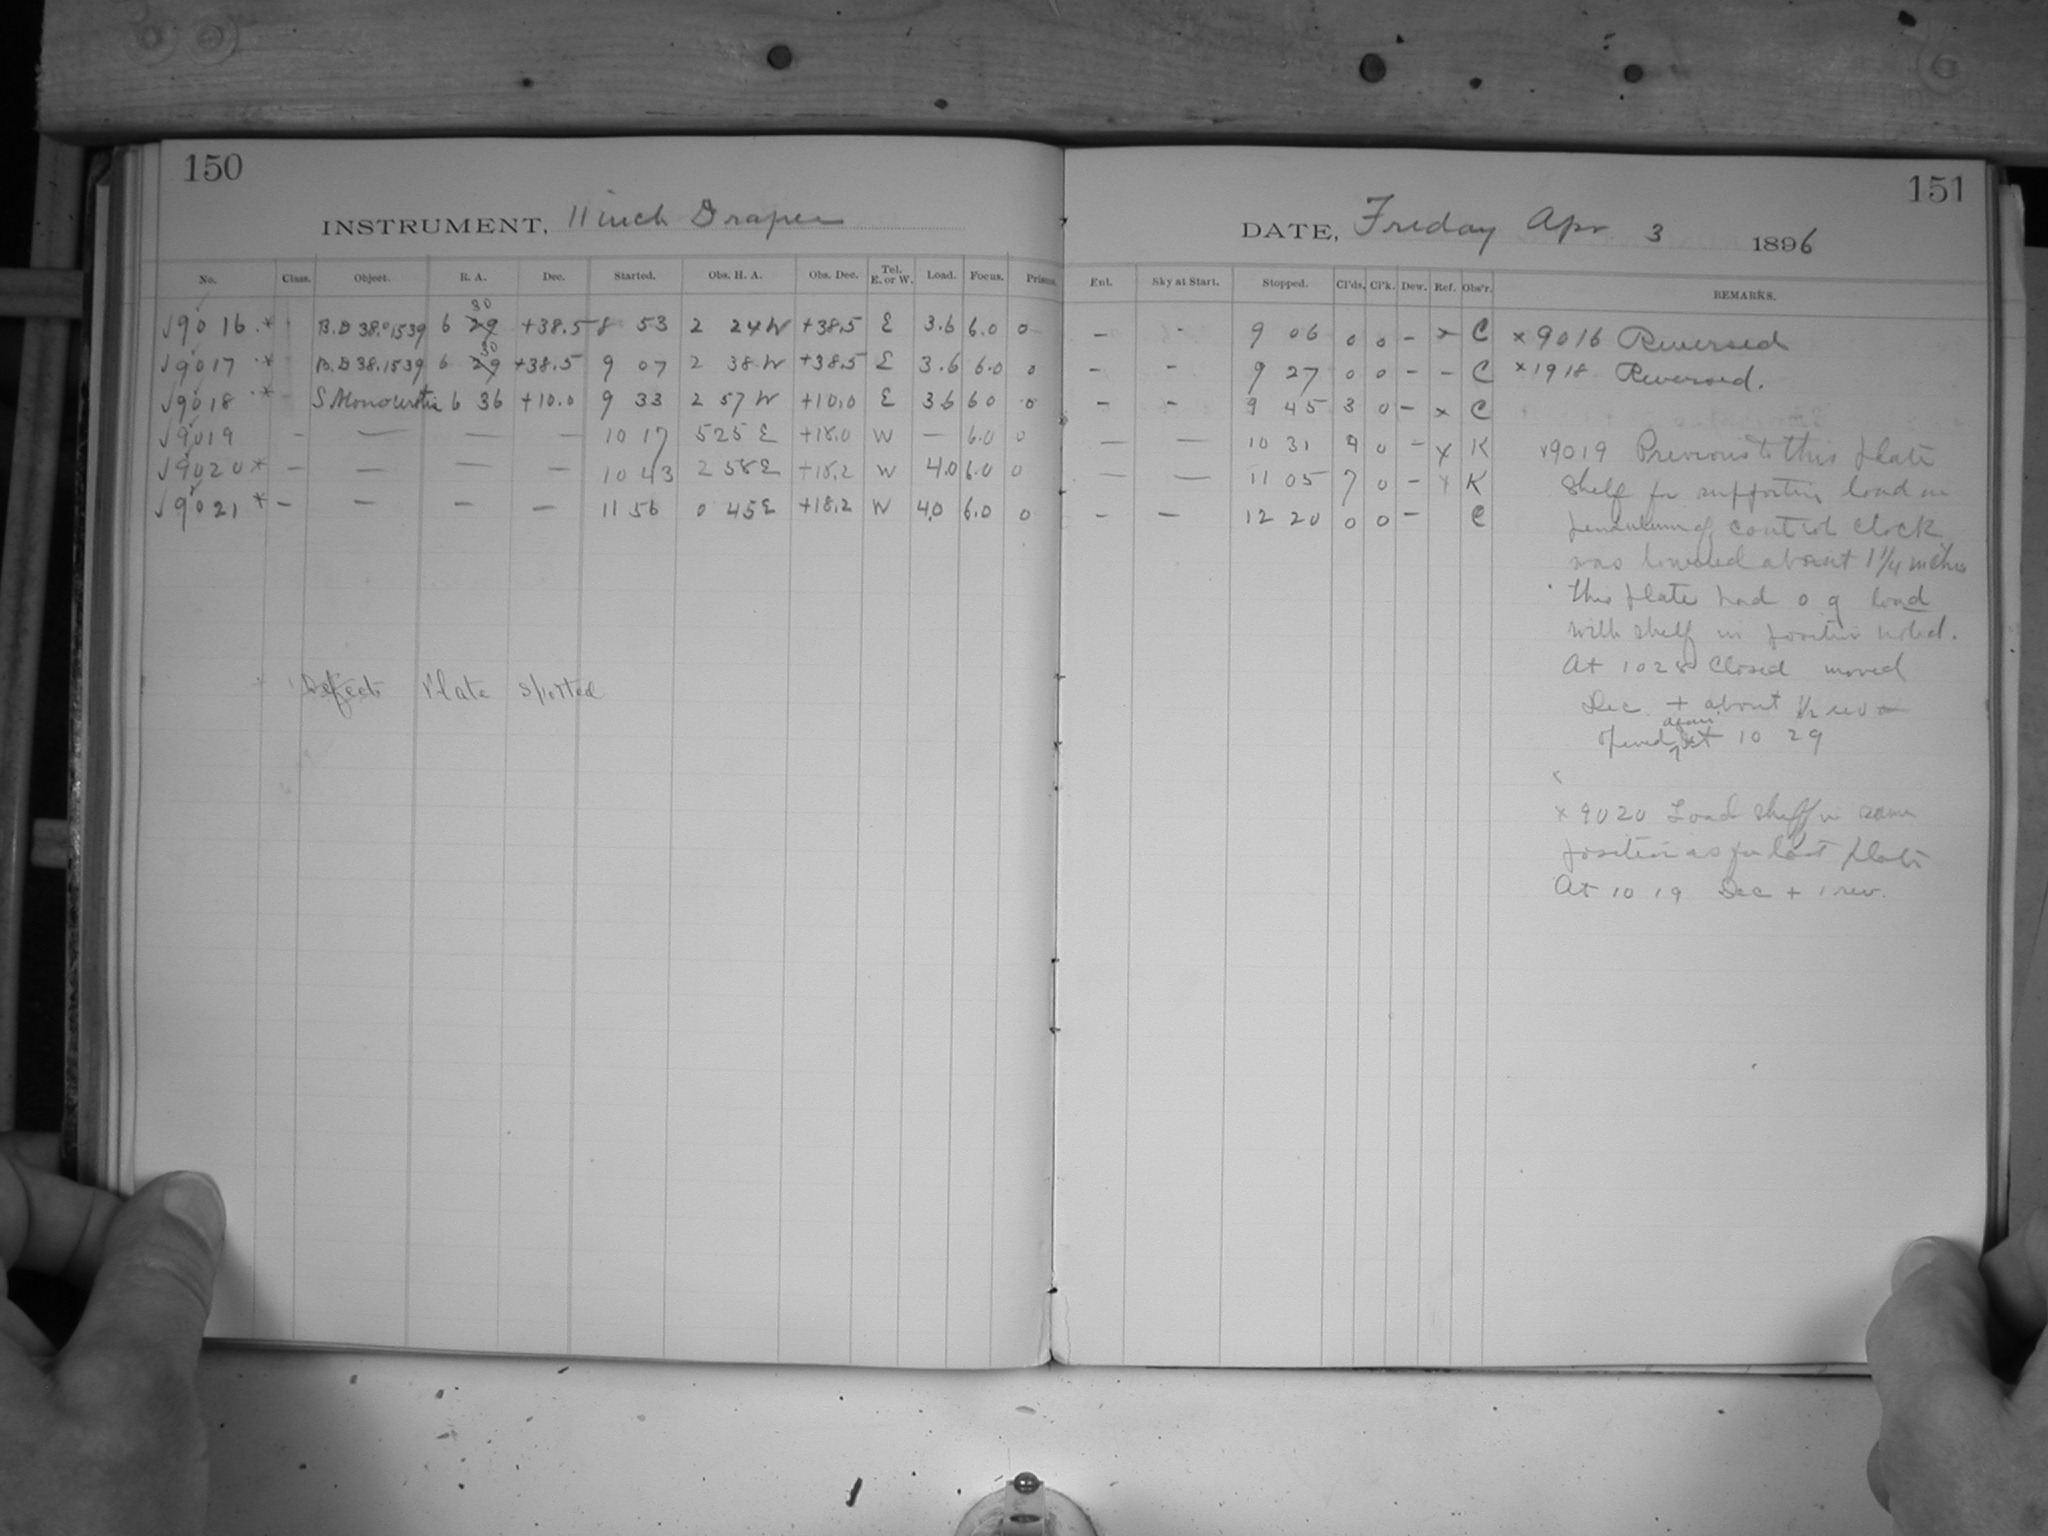 150
INSTRUMENT, 11 inch Draper
No. Class. Object. R. A. Dec. Started. Obs. H. A. Obs. Dec. Tel. E. or W. Load. Focus. Prisms.
30
J9016 * B.D 38.°1539 6 29 +38.5 8 53 2 24 W +38.5 E 3.6 6.0 0
30
J9017 * B.D 38.1539 6 29 +38.5 9 07 2 38 W +38.5 E 3.6 6.0 0
J9018 * S Monocerotis 6 36 +10.0 9 33 2 57 W +10.0 E 3.6 6.0 0
J9019 – – – – 10 17 5 25 E +18.0 W – 6.0 0
J9020 * – – – – 10 43 2 58 E +18.2 W 4.0 6.0 0
J9021 * – – – – 11 56 0 45 E +18.2 W 4.0 6.0 0
Defects Plate spotted
151
DATE, Friday Apr 3 1896
Ent. Sky at Start. Stopped. Cl'ds. Cl'k. Dew. Ref. Obs'r. REMARKS.
– – 9 06 0 0 – x C x 9016 Reversed
– – 9 27 0 0 – – C x 1918 Reversed.
– – 9 45 3 0 – x C
– – 10 31 9 0 – x K x9019 Previous to this plate
– – 11 05 7 0 – x K shelf for supporting load on
– – 12 20 0 0 – C pendulum of control clock
was lowered about 1 1/4 inches
this plate had 0 g load
with shelf in position noted.
At 10 28 closed moved
Dec + about 1/2 rev
again
opened at 10 29
x 9020 Load shelf in same
position as for last plate
At 10 19 Dec + 1 rev.